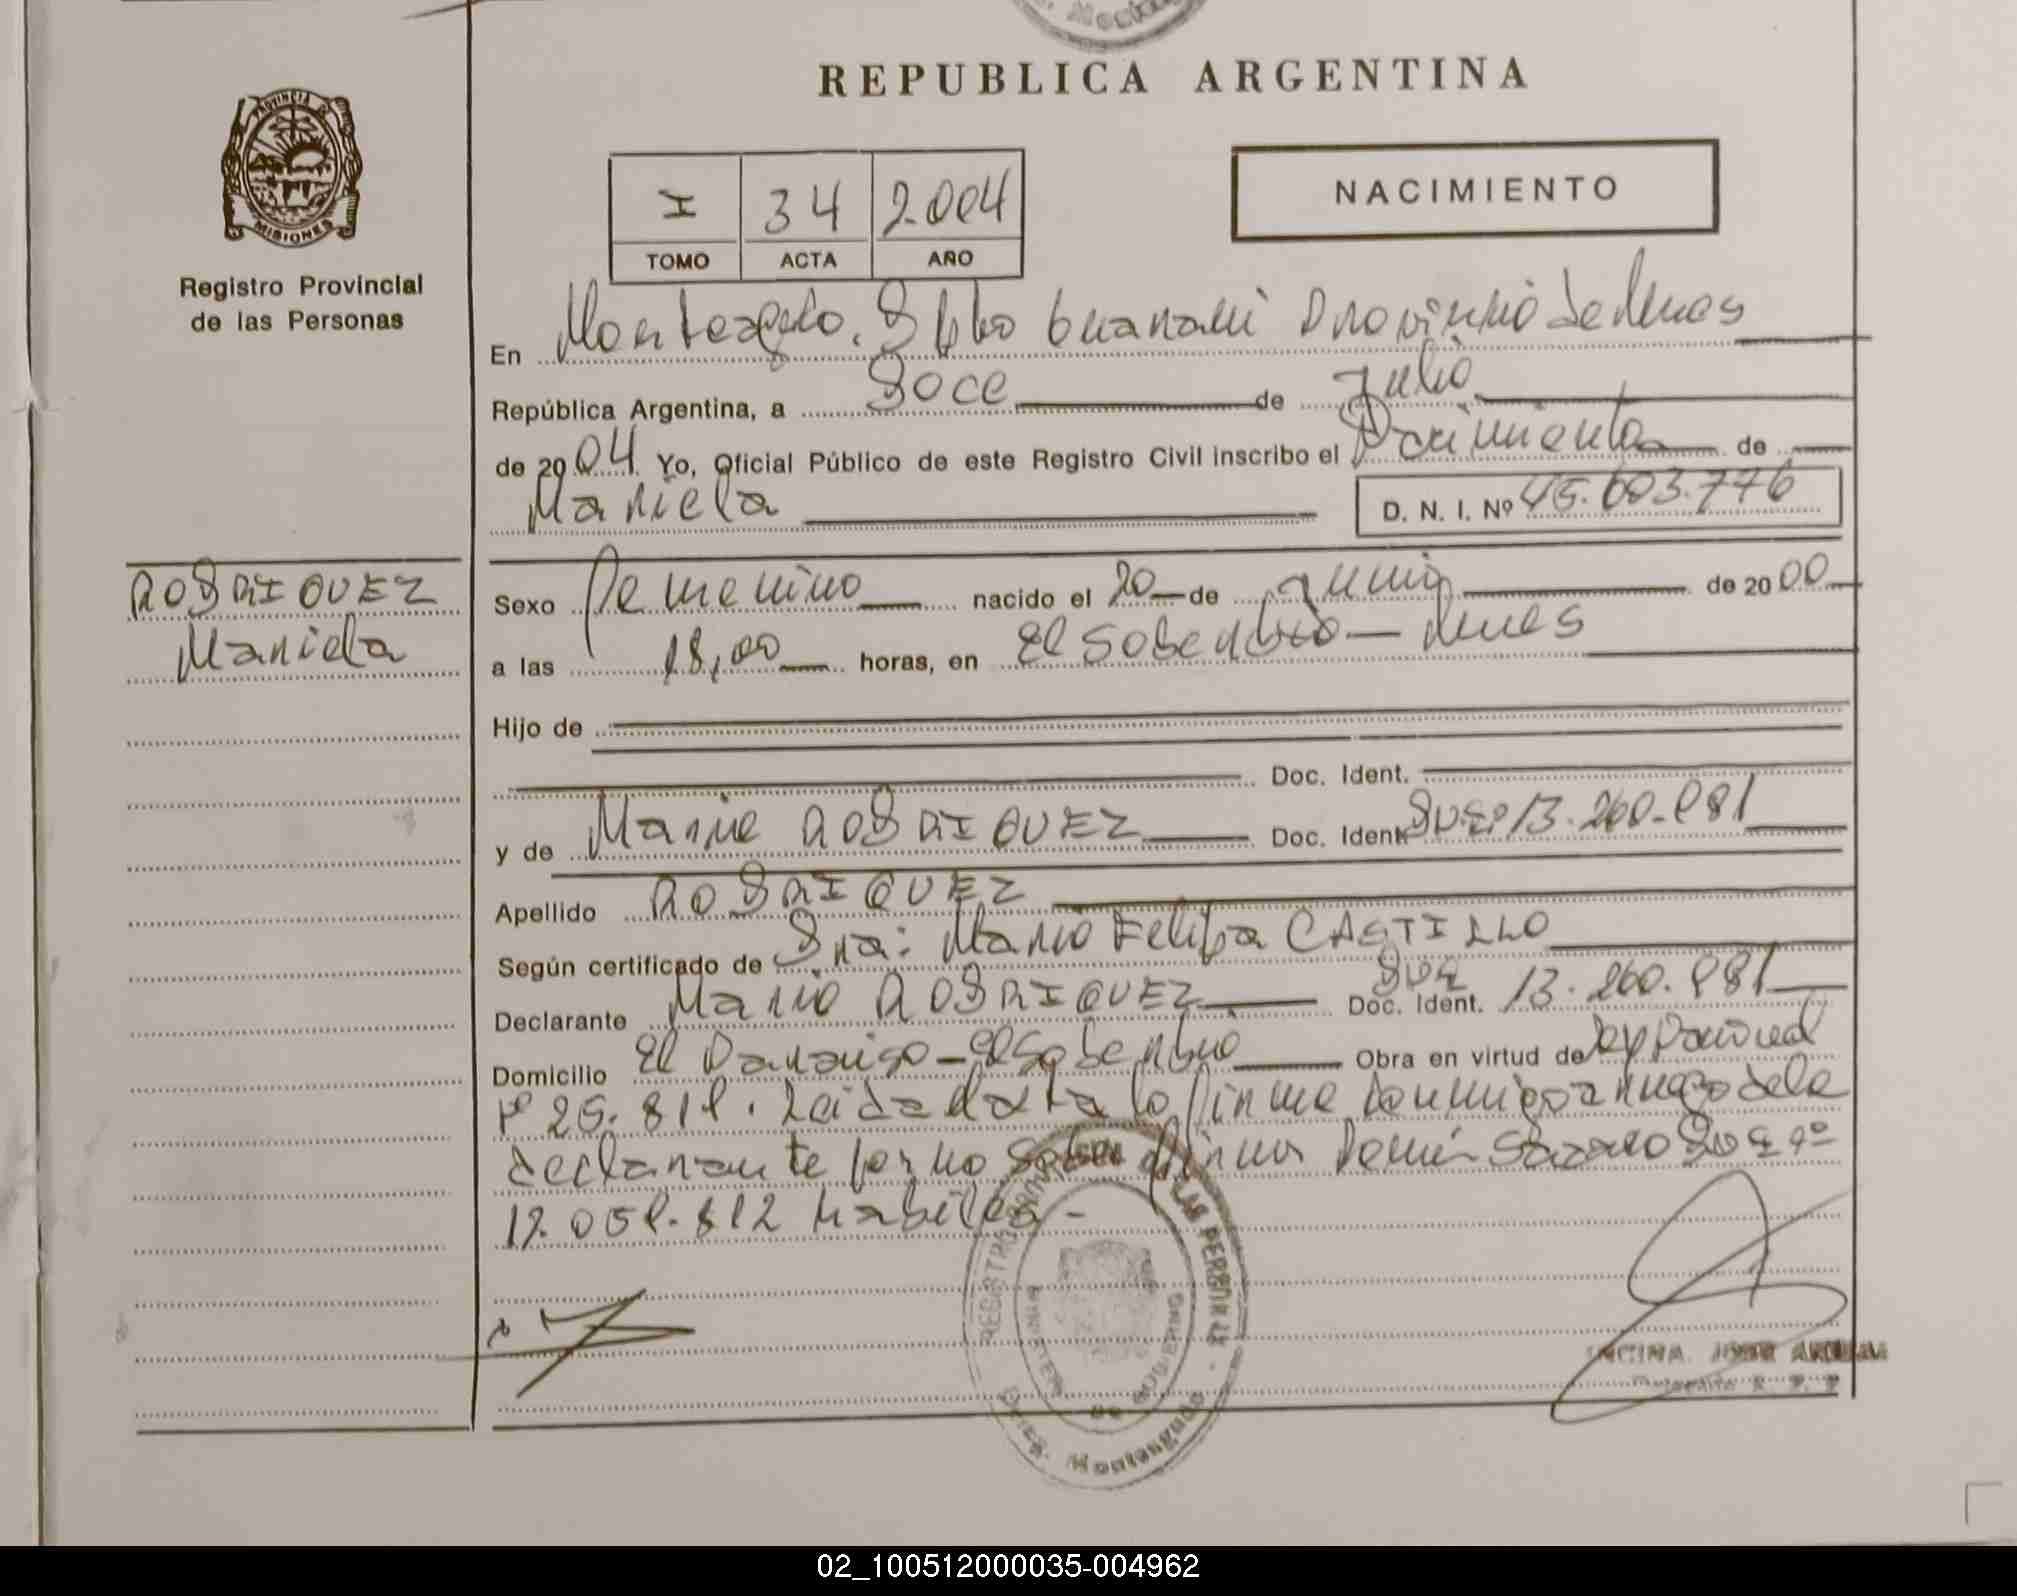 REPUBLICA ARGENTINA
PROVINCIA DE
MISIONES
Registro Provincial
de las Personas
I 34 2.004
TOMO ACTA AÑO
NACIMIENTO
En Monteagudo. Dpto Guarani Provincia de Mnes
República Argentina, a Doce de Julio
de 2004. Yo, Oficial Público de este Registro Civil inscribo el Nacimiento de
Mariela D. N. I. Nº 45.603.776
RODRIGUEZ
Mariela
Sexo Femenino nacido el 20 de Junio de 2000
a las 18,00 horas, en El Soberbio - Mnes
Hijo de
Doc. Ident.
y de Maria RODRIGUEZ Doc. Ident. DNI Nº 13.260.981
Apellido RODRIGUEZ
Según certificado de Sra: Maria Felipa CASTILLO
Declarante Maria RODRIGUEZ Doc. Ident. DNI 13.260.981
Domicilio El Paraiso - El Soberbio Obra en virtud de Ley Nacional
Nº 25.819. Leida el acta la firma conmigo a ruego de la
declarante por no saber firmar DNI Nº
REGISTRO LAS PERSONAS
MINISTERIO DE GOBIERNO
Monteagudo
ENCINA, JOSE
02_100512000035-004962